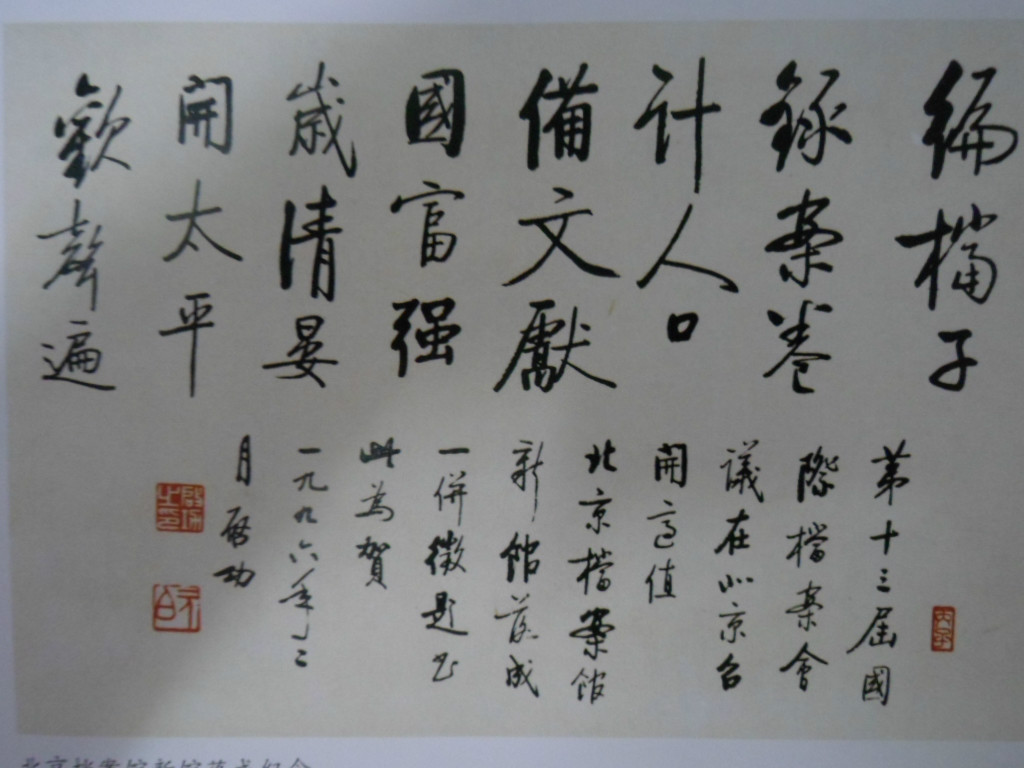 編檔子
錄案卷
计人口
備文獻
國富强
歲清晏
開太平
歡聲遍
第十三屆國
際檔案會
議在北京召
開適值
北京檔案館
新館落成
一併徵題书
此為賀
一九九六年二
月啓功
元白
北京档案馆新馆落成纪念